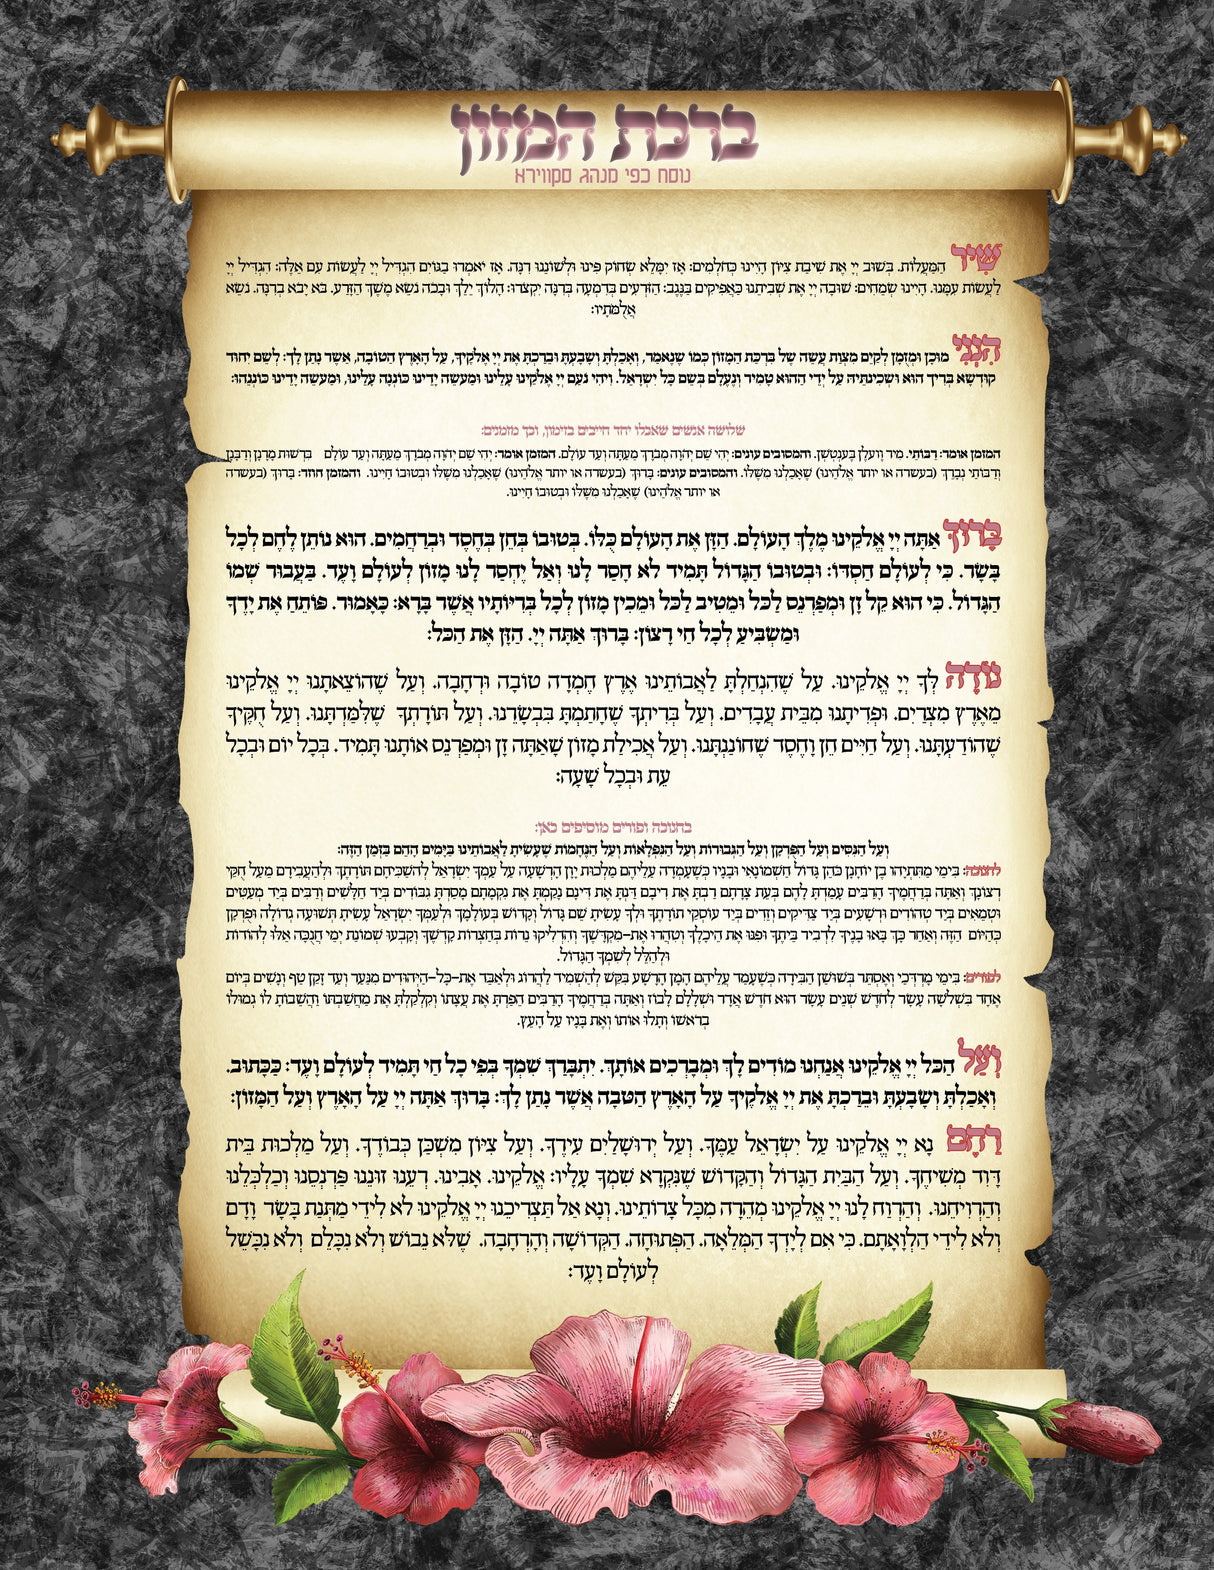 ברכת המזון
נוסח כפי מנהג סקווירא
שִׁיר הַמַּעֲלוֹת. בְּשׁוּב יְיָ אֶת שִׁיבַת צִיּוֹן הָיִינוּ כְּחֹלְמִים: אָז יִמָּלֵא שְׂחוֹק פִּינוּ וּלְשׁוֹנֵנוּ רִנָּה. אָז יֹאמְרוּ בַגּוֹיִם הִגְדִּיל יְיָ לַעֲשׂוֹת עִם אֵלֶּה: הִגְדִּיל יְיָ
לַעֲשׂוֹת עִמָּנוּ. הָיִינוּ שְׂמֵחִים: שׁוּבָה יְיָ אֶת שְׁבִיתֵנוּ כַּאֲפִיקִים בַּנֶּגֶב: הַזֹּרְעִים בְּדִמְעָה בְּרִנָּה יִקְצֹרוּ: הָלוֹךְ יֵלֵךְ וּבָכֹה נֹשֵׂא מֶשֶׁךְ הַזָּרַע. בֹּא יָבֹא בְרִנָּה. נֹשֵׂא
אֲלֻמֹּתָיו:
הִנְנִי מוּכָן וּמְזֻמָּן לְקַיֵּם מִצְוַת עֲשֵׂה שֶׁל בִּרְכַּת הַמָּזוֹן כְּמוֹ שֶׁנֶּאֱמַר, וְאָכַלְתָּ וְשָׂבָעְתָּ וּבֵרַכְתָּ אֶת יְיָ אֱלֹקֶיךָ, עַל הָאָרֶץ הַטּוֹבָה, אֲשֶׁר נָתַן לָךְ: לְשֵׁם יִחוּד
קוּדְשָׁא בְּרִיךְ הוּא וּשְׁכִינְתֵּיהּ עַל יְדֵי הַהוּא טָמִיר וְנֶעְלָם בְּשֵׁם כָּל יִשְׂרָאֵל. וִיהִי נֹעַם יְיָ אֱלֹקֵינוּ עָלֵינוּ וּמַעֲשֵׂה יָדֵינוּ כּוֹנְנָה עָלֵינוּ, וּמַעֲשֵׂה יָדֵינוּ כּוֹנְנֵהוּ:
שלישה אנשים שאכלו יחד חייבים בזימון, וכך מזמנים:
המזמן אומר: רַבּוֹתַי. מִיר וֶועלְן בֶּענְטְשְׁן. והמסובים עונים: יְהִי שֵׁם יְהֹוָה מְבֹרָךְ מֵעַתָּה וְעַד עוֹלָם. המזמן אומר: יְהִי שֵׁם יְהֹוָה מְבֹרָךְ מֵעַתָּה וְעַד עוֹלָם בִּרְשׁוּת מָרָנָן וְרַבָּנָן
וְרַבּוֹתַי נְבָרֵךְ (בעשרה או יותר אֱלֹהֵינוּ) שֶׁאָכַלְנוּ מִשֶּׁלּוֹ. והמסובים עונים: בָּרוּךְ (בעשרה או יותר אֱלֹהֵינוּ) שֶׁאָכַלְנוּ מִשֶּׁלּוֹ וּבְטוּבוֹ חָיִינוּ. והמזמן חוזר: בָּרוּךְ (בעשרה
או יותר אֱלֹהֵינוּ) שֶׁאָכַלְנוּ מִשֶּׁלּוֹ וּבְטוּבוֹ חָיִינוּ.
בָּרוּךְ אַתָּה יְיָ אֱלֹקֵינוּ מֶלֶךְ הָעוֹלָם. הַזָּן אֶת הָעוֹלָם כֻּלּוֹ. בְּטוּבוֹ בְּחֵן בְּחֶסֶד וּבְרַחֲמִים. הוּא נוֹתֵן לֶחֶם לְכָל
בָּשָׂר. כִּי לְעוֹלָם חַסְדּוֹ: וּבְטוּבוֹ הַגָּדוֹל תָּמִיד לֹא חָסַר לָנוּ וְאַל יֶחְסַר לָנוּ מָזוֹן לְעוֹלָם וָעֶד. בַּעֲבוּר שְׁמוֹ
הַגָּדוֹל. כִּי הוּא קֵל זָן וּמְפַרְנֵס לַכֹּל וּמֵטִיב לַכֹּל וּמֵכִין מָזוֹן לְכָל בְּרִיּוֹתָיו אֲשֶׁר בָּרָא: כָּאָמוּר. פּוֹתֵחַ אֶת יָדֶךָ
וּמַשְׂבִּיעַ לְכָל חַי רָצוֹן: בָּרוּךְ אַתָּה יְיָ. הַזָּן אֶת הַכֹּל:
נוֹדֶה לְּךָ יְיָ אֱלֹקֵינוּ. עַל שֶׁהִנְחַלְתָּ לַאֲבוֹתֵינוּ אֶרֶץ חֶמְדָּה טוֹבָה וּרְחָבָה. וְעַל שֶׁהוֹצֵאתָנוּ יְיָ אֱלֹקֵינוּ
מֵאֶרֶץ מִצְרַיִם. וּפְדִיתָנוּ מִבֵּית עֲבָדִים. וְעַל בְּרִיתְךָ שֶׁחָתַמְתָּ בִּבְשָׂרֵנוּ. וְעַל תּוֹרָתְךָ שֶׁלִּמַּדְתָּנוּ. וְעַל חֻקֶּיךָ
שֶׁהוֹדַעְתָּנוּ. וְעַל חַיִּים חֵן וָחֶסֶד שֶׁחוֹנַנְתָּנוּ. וְעַל אֲכִילַת מָזוֹן שָׁאַתָּה זָן וּמְפַרְנֵס אוֹתָנוּ תָּמִיד. בְּכָל יוֹם וּבְכָל
עֵת וּבְכָל שָׁעָה:
בחנוכה ופורים מוסיפים כאן:
וְעַל הַנִּסִּים וְעַל הַפֻּרְקָן וְעַל הַגְּבוּרוֹת וְעַל הַנִּפְלָאוֹת וְעַל הַנֶּחָמוֹת שֶׁעָשִׂיתָ לַאֲבוֹתֵינוּ בַּיָּמִים הָהֵם בַּזְּמַן הַזֶּה:
לחנוכה: בִּימֵי מַתִּתְיָהוּ בֶּן יוֹחָנָן כֹּהֵן גָּדוֹל חַשְׁמוֹנָאִי וּבָנָיו כְּשֶׁעָמְדָה עֲלֵיהֶם מַלְכוּת יָוָן הָרְשָׁעָה עַל עַמְּךָ יִשְׂרָאֵל לְהַשְׁכִּיחָם תּוֹרָתָךְ וּלְהַעֲבִירָם מֵעַל חֻקֵּי
רְצוֹנָךְ וְאַתָּה בְּרַחֲמֶיךָ הָרַבִּים עָמַדְתָּ לָהֶם בְּעֵת צָרָתָם רַבְתָּ אֶת רִיבָם דַּנְתָּ אֶת דִּינָם נָקַמְתָּ אֶת נִקְמָתָם מָסַרְתָּ גִבּוֹרִים בְּיַד חַלָּשִׁים וְרַבִּים בְּיַד מְעַטִּים
וּטְמֵאִים בְּיַד טְהוֹרִים וּרְשָׁעִים בְּיַד צַדִּיקִים וְזֵדִים בְּיַד עוֹסְקֵי תוֹרָתֶךָ וּלְךָ עָשִׂיתָ שֵׁם גָּדוֹל וְקָדוֹשׁ בְּעוֹלָמֶךָ וּלְעַמְּךָ יִשְׂרָאֵל עָשִׂיתָ תְּשׁוּעָה גְדוֹלָה וּפֻרְקָן
כְּהַיּוֹם הַזֶּה וְאַחַר כָּךְ בָּאוּ בָנֶיךָ לִדְבִיר בֵּיתֶךָ וּפִנּוּ אֶת הֵיכָלֶךָ וְטִהֲרוּ אֶת-מִקְדָּשֶׁךָ וְהִדְלִיקוּ נֵרוֹת בְּחַצְרוֹת קָדְשֶׁךָ וְקָבְעוּ שְׁמוֹנַת יְמֵי חֲנֻכָּה אֵלּוּ לְהוֹדוֹת
וּלְהַלֵּל לְשִׁמְךָ הַגָּדוֹל.
לפורים: בִּימֵי מָרְדְּכַי וְאֶסְתֵּר בְּשׁוּשַׁן הַבִּירָה כְּשֶׁעָמַד עֲלֵיהֶם הָמָן הָרָשָׁע בִּקֵּשׁ לְהַשְׁמִיד לַהֲרוֹג וּלְאַבֵּד אֶת-כָּל-הַיְּהוּדִים מִנַּעַר וְעַד זָקֵן טַף וְנָשִׁים בְּיוֹם
אֶחָד בִּשְׁלֹשָׁה עָשָׂר לְחֹדֶשׁ שְׁנֵים עָשָׂר הוּא חֹדֶשׁ אֲדָר וּשְׁלָלָם לָבוֹז וְאַתָּה בְּרַחֲמֶיךָ הָרַבִּים הֵפַרְתָּ אֶת עֲצָתוֹ וְקִלְקַלְתָּ אֶת מַחֲשַׁבְתּוֹ וַהֲשֵׁבוֹתָ לּוֹ גְּמוּלוֹ
בְּרֹאשׁוֹ וְתָלוּ אוֹתוֹ וְאֶת בָּנָיו עַל הָעֵץ.
וְעַל הַכֹּל יְיָ אֱלֹקֵינוּ אֲנַחְנוּ מוֹדִים לָךְ וּמְבָרְכִים אוֹתָךְ. יִתְבָּרַךְ שִׁמְךָ בְּפִי כָּל חַי תָּמִיד לְעוֹלָם וָעֶד: כַּכָּתוּב.
וְאָכַלְתָּ וְשָׂבָעְתָּ וּבֵרַכְתָּ אֶת יְיָ אֱלֹקֶיךָ עַל הָאָרֶץ הַטֹּבָה אֲשֶׁר נָתַן לָךְ: בָּרוּךְ אַתָּה יְיָ עַל הָאָרֶץ וְעַל הַמָּזוֹן:
רַחֵם נָא יְיָ אֱלֹקֵינוּ עַל יִשְׂרָאֵל עַמֶּךָ. וְעַל יְרוּשָׁלַיִם עִירֶךָ. וְעַל צִיּוֹן מִשְׁכַּן כְּבוֹדֶךָ. וְעַל מַלְכוּת בֵּית
דָּוִד מְשִׁיחֶךָ. וְעַל הַבַּיִת הַגָּדוֹל וְהַקָּדוֹשׁ שֶׁנִּקְרָא שִׁמְךָ עָלָיו: אֱלֹקֵינוּ. אָבִינוּ. רְעֵנוּ זוּנֵנוּ פַּרְנְסֵנוּ וְכַלְכְּלֵנוּ
וְהַרְוִיחֵנוּ. וְהַרְוַח לָנוּ יְיָ אֱלֹקֵינוּ מְהֵרָה מִכָּל צָרוֹתֵינוּ. וְנָא אַל תַּצְרִיכֵנוּ יְיָ אֱלֹקֵינוּ לֹא לִידֵי מַתְּנַת בָּשָׂר וָדָם
וְלֹא לִידֵי הַלְוָאָתָם. כִּי אִם לְיָדְךָ הַמְּלֵאָה. הַפְּתוּחָה. הַקְּדוֹשָׁה וְהָרְחָבָה. שֶׁלֹּא נֵבוֹשׁ וְלֹא נִכָּלֵם וְלֹא נִכָּשֵׁל
לְעוֹלָם וָעֶד: